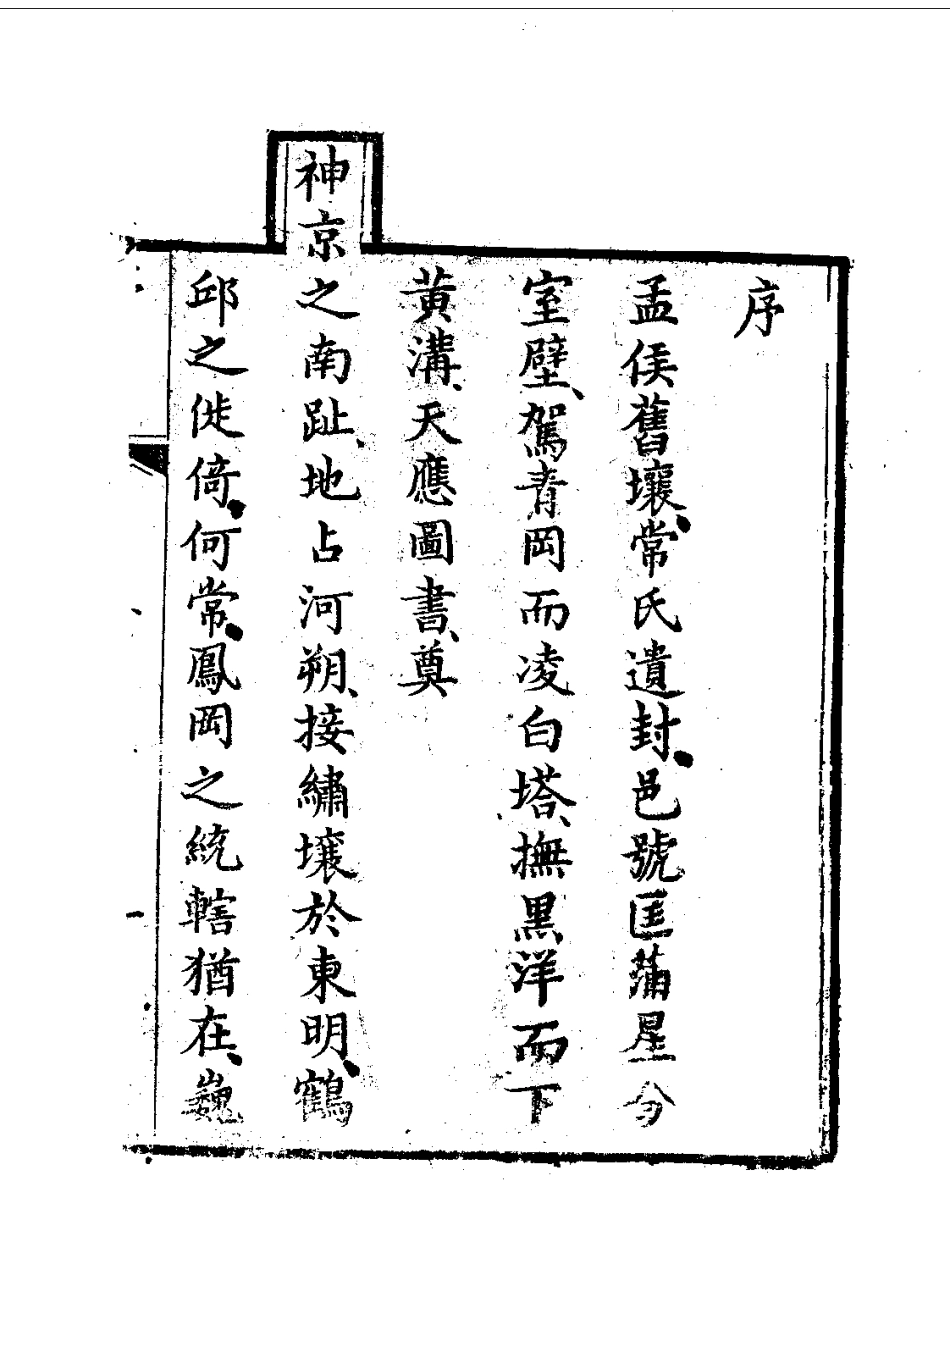 序
孟侯舊壤、常氏遺封、邑號匡蒲星分
室壁、駕青岡而凌白塔、撫黑洋而下
黃溝、天應圖書、奠
神京之南趾、地占河朔、接繡壤於東明、鶴
邱之徙倚、何常、鳳岡之統轄猶在、巍